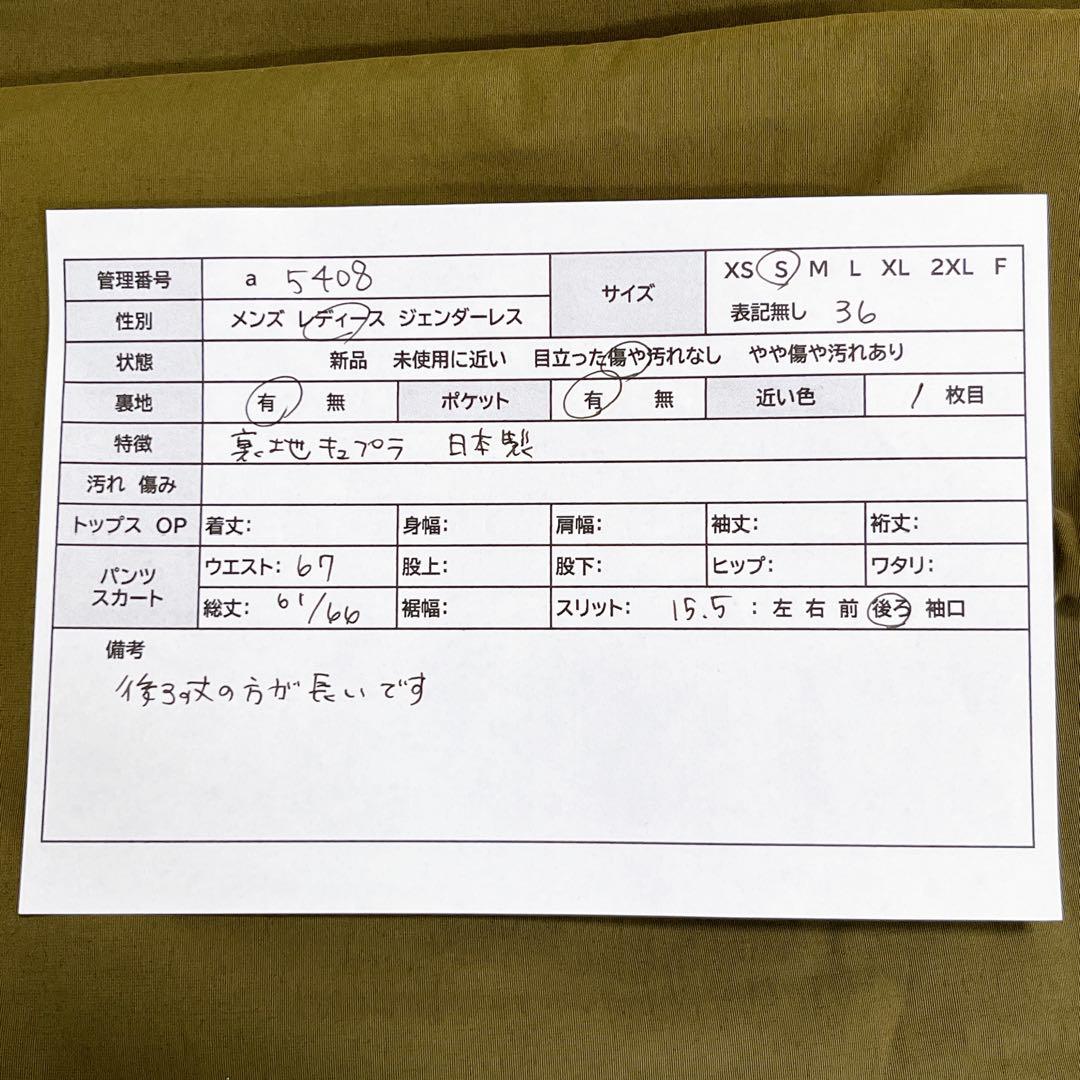 管理番号 a 5408 サイズ XS S M L XL 2XL F
性別 メンズ レディース ジェンダーレス 表記無し 36
状態 新品 未使用に近い 目立った傷や汚れなし やや傷や汚れあり
裏地 有 無 ポケット 有 無 近い色 1 枚目
特徴 裏地キュプラ 日本製
汚れ 傷み
トップス OP 着丈: 身幅: 肩幅: 袖丈: 裄丈:
パンツ スカート ウエスト: 67 股上: 股下: ヒップ: ワタリ:
総丈: 61/66 裾幅: スリット: 15.5 : 左 右 前 後ろ 袖口
備考
後ろの丈の方が長いです